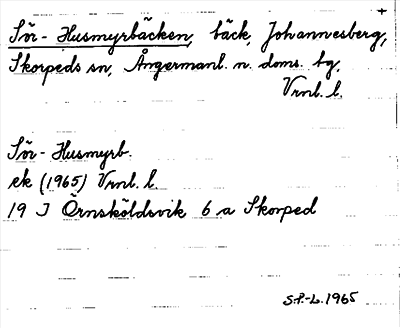 +
Sör-Husmyrbäcken, bäck, Johannesberg,
Skorpeds sn, Ångermanl. n. doms. bg,
Vrnl. l.
Sör-Husmyrb.
ek (1965) Vrnl. l.
19 J Örnsköldsvik 6 a Skorped
S.P.-L. 1965